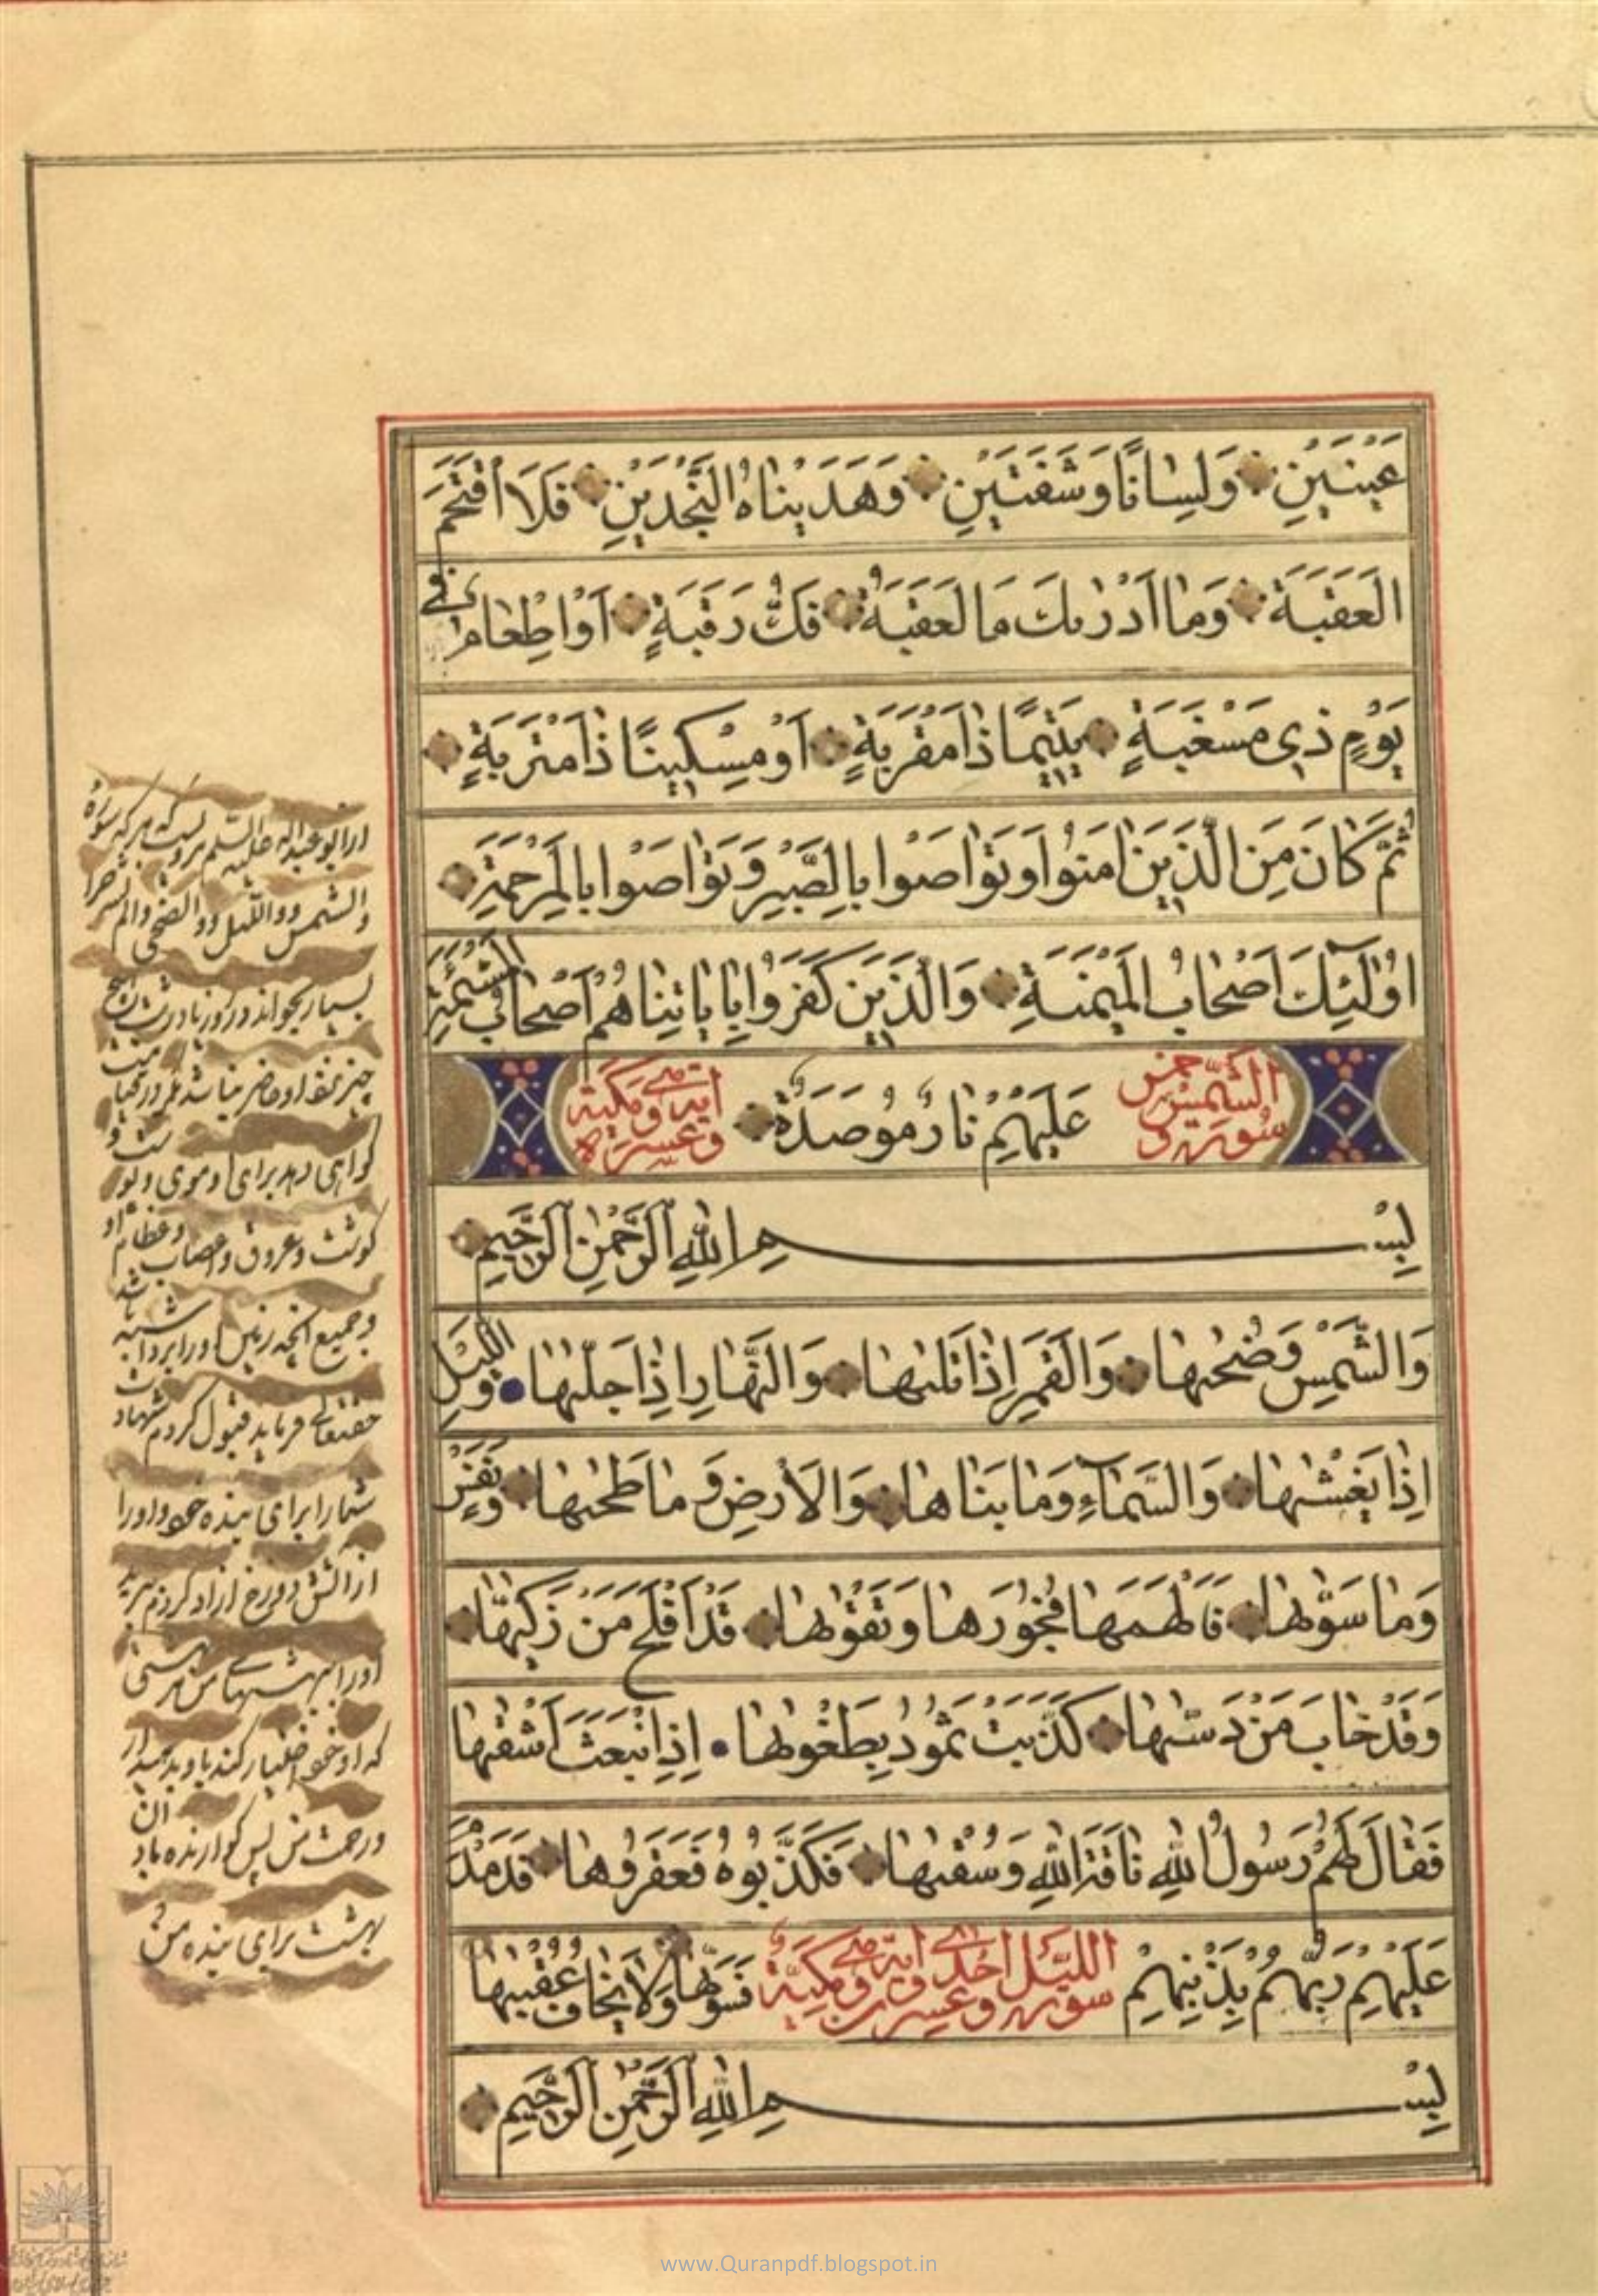 عَيْنَيْنِ وَلِسَانًا وَشَفَتَيْنِ وَهَدَيْنَاهُ النَّجْدَيْنِ فَلَا اقْتَحَمَ
الْعَقَبَةَ وَمَا أَدْرٰىكَ مَا لْعَقَبَةُ فَكُّ رَقَبَةٍ أَوْ اِطْعَامٌ فِي
يَوْمٍ ذِي مَسْغَبَةٍ يَتِيمًا ذَا مَقْرَبَةٍ أَوْ مِسْكِينًا ذَا مَتْرَبَةٍ
ثُمَّ كَانَ مِنَ الَّذِينَ امَنُوا وَتَوَاصَوْا بِالصَّبْرِ وَتَوَاصَوْا بِالْمَرْحَمَةِ
اُولٰئِكَ اَصْحَابُ الْمَيْمَنَةِ وَالَّذِينَ كَفَرُوا بِايَاتِنَا هُمْ اَصْحَابُ الْمَشْئَمَةِ
سورة الشمس خمس عَلَيْهِمْ نَارٌ مُوصَدَةٌ وعشر اية وهي مكية
بِسْمِ اللهِ الرَّحْمٰنِ الرَّحِيمِ
وَالشَّمْسِ وَضُحٰيهَا وَالْقَمَرِ اِذَا تَلٰيهَا وَالنَّهَارِ اِذَا جَلّٰيهَا وَاللَّيْلِ
اِذَا يَغْشٰيهَا وَالسَّمَاءِ وَمَا بَنَاهَا وَالْاَرْضِ وَمَا طَحٰيهَا وَنَفْسٍ
وَمَا سَوّٰيهَا فَاَلْهَمَهَا فُجُورَهَا وَتَقْوٰيهَا قَدْ اَفْلَحَ مَنْ زَكّٰيهَا
وَقَدْ خَابَ مَنْ دَسّٰيهَا كَذَّبَتْ ثَمُودُ بِطَغْوٰيهَا اِذِ انْبَعَثَ اَشْقٰيهَا
فَقَالَ لَهُمْ رَسُولُ اللهِ نَاقَةَ اللهِ وَسُقْيٰهَا فَكَذَّبُوهُ فَعَقَرُوهَا فَدَمْدَمَ
عَلَيْهِمْ رَبُّهُمْ بِذَنْبِهِمْ سورة الليل احدى وعشرون اية وهي مكية فَسَوّٰيهَا وَلَا يَخَافُ عُقْبٰيهَا
بِسْمِ اللهِ الرَّحْمٰنِ الرَّحِيمِ
از ابو عبداله عليه السلم مرويست كه هر كه سوره
والشمس و والليل و والضحى و الم نشرح را
بسيار بخواند در روز يا در شب هيچ
چيز نزد او حاضر نباشد مگر در قيامت
گواهى دهد براى او موى و پوست و
گوشت و عروق و اعصاب و عظام او
و جميع آنچه زمين او را برداشته باشد
حقتعالى فرمايد قبول كردم شهادت
شما را براى بنده خود و او را
از آتش دوزخ ازاد كردم ببريد
او را ببهشتهاى من هر بهشتى
كه او خود اختيار كند باو بدهيد از آن
ورحمت من پس گوارنده باد
بهشت براى بنده من
www.Quranpdf.blogspot.in